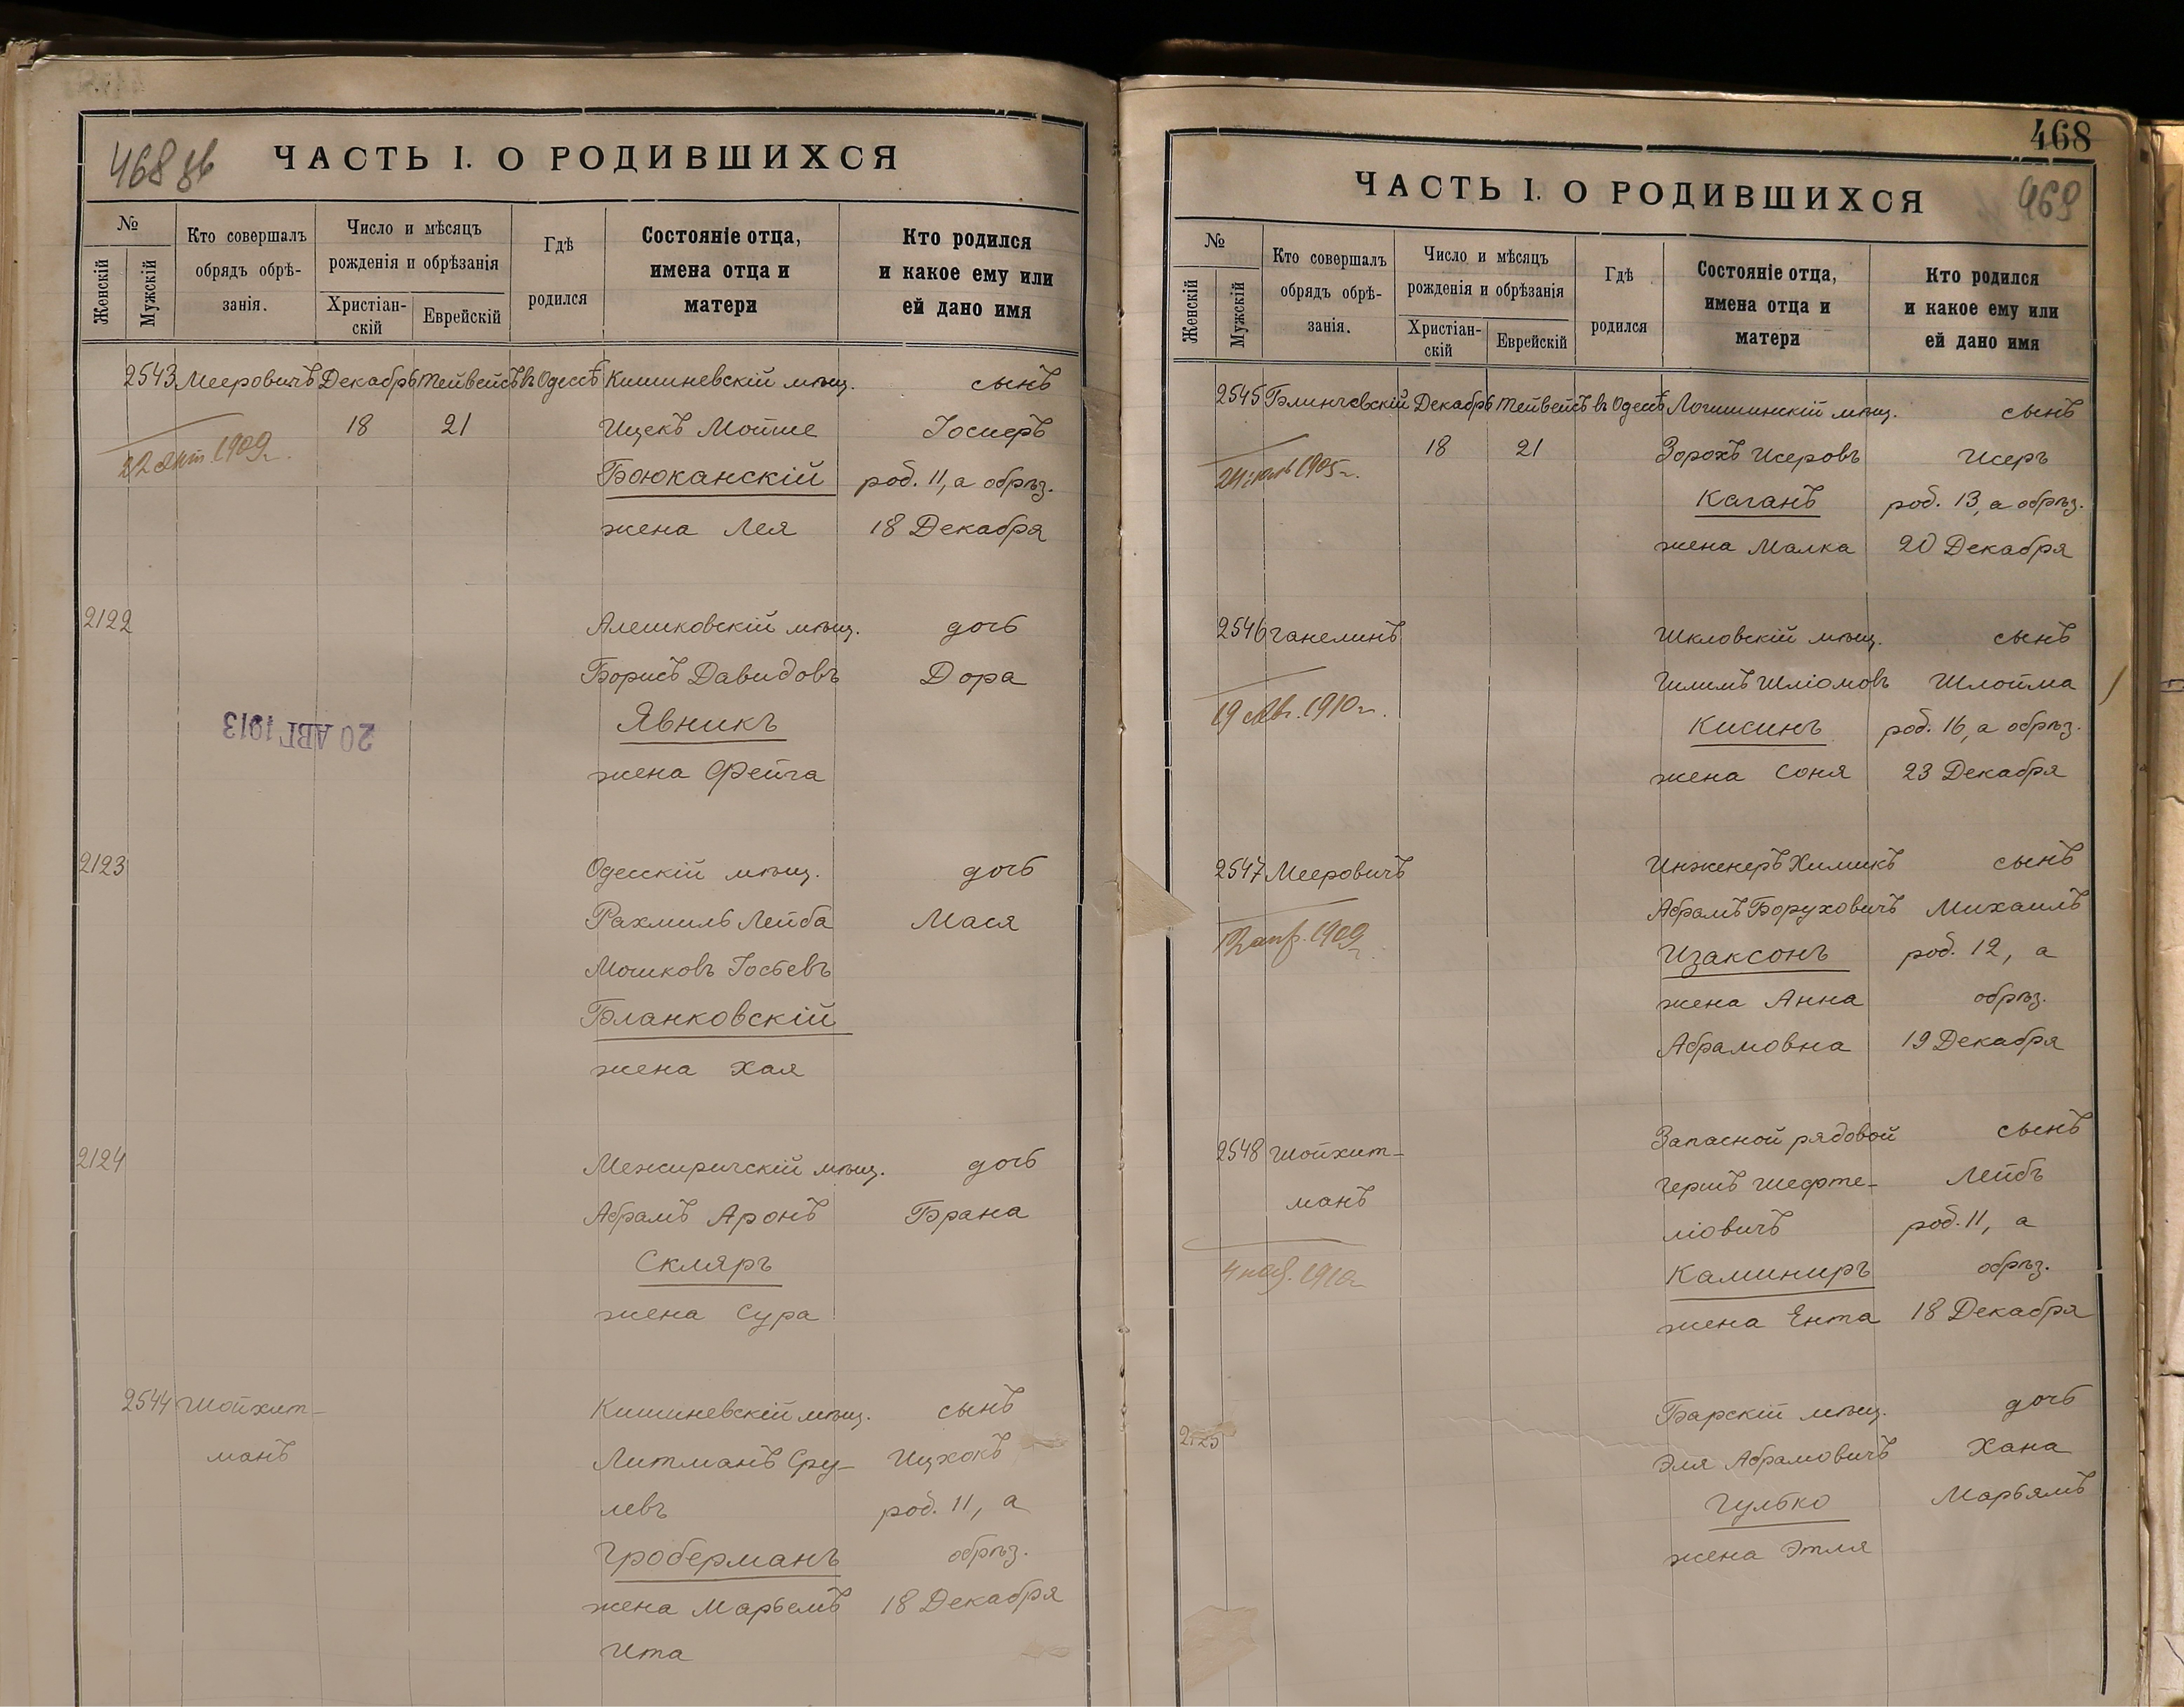 468 зв
ЧАСТЬ I. О РОДИВШИХСЯ
№
Женскій
Мужскій
Кто совершалъ
обрядъ обрѣ-
занія.
Число и мѣсяцъ
рожденія и обрѣзанія
Христіан-
скій
Еврейскій
Гдѣ
родился
Состояніе отца,
имена отца и
матери
Кто родился
и какое ему или
ей дано имя
2543 Мееровичъ Декабрь Тейвейсъ въ Одессѣ Кишиневскій мѣщ. сынъ
18 21 Ицекъ Мойше Іосиеръ
22 1909 г.
Боюканскій род. 11, а обрѣз.
жена Лея 18 Декабря
2122 Алешковскій мѣщ. дочь
Борисъ Давидовъ Дора
20 АВГ 1913
Явникъ
жена Фейга
2123 Одесскій мѣщ. дочь
Рахмиль Лейба Мася
Мошковъ Іосьевъ
Бланковскій
жена Хая
2124 Межиричскій мѣщ. дочь
Абрамъ Аронъ Брана
Скляръ
жена Сура
2544 Шойхит-
манъ
Кишиневскій мѣщ. сынъ
Литманъ Сру- Ицхокъ
левъ род. 11, а
Гроберманъ обрѣз.
жена Марьемъ 18 Декабря
Ита
468
469
ЧАСТЬ I. О РОДИВШИХСЯ
№
Женскій
Мужскій
Кто совершалъ
обрядъ обрѣ-
занія.
Число и мѣсяцъ
рожденія и обрѣзанія
Христіан-
скій
Еврейскій
Гдѣ
родился
Состояніе отца,
имена отца и
матери
Кто родился
и какое ему или
ей дано имя
2545 Блинчевскій Декабрь Тейвейсъ въ Одессѣ Логишинскій мѣщ. сынъ
18 21 Зорохъ Исеровъ Исеръ
24 1905 г.
Каганъ род. 13, а обрѣз.
жена Малка 20 Декабря
2546 Ганелинъ Шкловскій мѣщ. сынъ
Шлимъ Шліомовъ Шлойма
19 Авг. 1910 г.
Кисинъ род. 16, а обрѣз.
жена Соня 23 Декабря
2547 Мееровичъ Инженеръ Химикъ сынъ
Абрамъ Боруховичъ Михаилъ
апр. 1909 г.
Изаксонъ род. 12, а
жена Анна обрѣз.
Абрамовна 19 Декабря
2548 Шойхит-
манъ
Запасной рядовой сынъ
Гершъ Шефте- Лейбъ
ліовичъ род. 11, а
4 1910 г.
Каминиръ обрѣз.
жена Ента 18 Декабря
2125 Барскій мѣщ. дочь
Эля Абрамовичъ Хана
Гулько Марьямъ
жена Этля